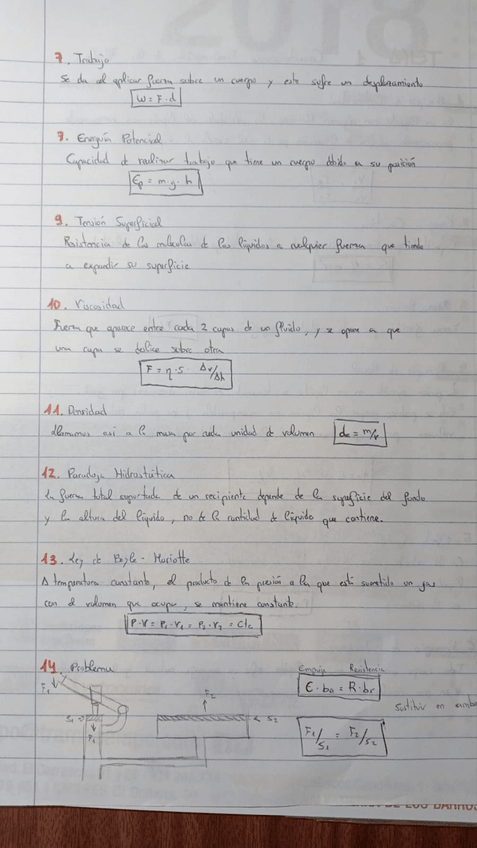 7. Trabajo
Se da al aplicar fuerza sobre un cuerpo y este sufre un desplazamiento
W = F · d
7. Energía Potencial
Capacidad de realizar trabajo que tiene un cuerpo debido a su posición
Ep = m · g · h
9. Tensión Superficial
Resistencia de las moléculas de los líquidos a cualquier fuerza que tienda
a expandir su superficie
10. Viscosidad
Fuerza que aparece entre cada 2 capas de un fluido, y se opone a que
una capa se deslice sobre otra
F = η · S · Δv/Δh
11. Densidad
Llamamos así a la masa por cada unidad de volumen
m/v
12. Paradoja Hidrostática
La fuerza total soportada de un recipiente depende de la superficie del fondo
y la altura del líquido, no de la cantidad de líquido que contiene.
13. Ley de Boyle - Mariotte
A temperatura constante, el producto de la presión a la que está sometido un gas
con el volumen que ocupa, se mantiene constante.
P · V = P₁ · V₁ = P₂ · V₂ = Cte
14. Problema
Empuje Resistencia
E · ba = R · br
Sustituir en
F₁ F₂
S₁ S₂
P₁
F₁/S₁ = F₂/S₂
DE LOS BARROS